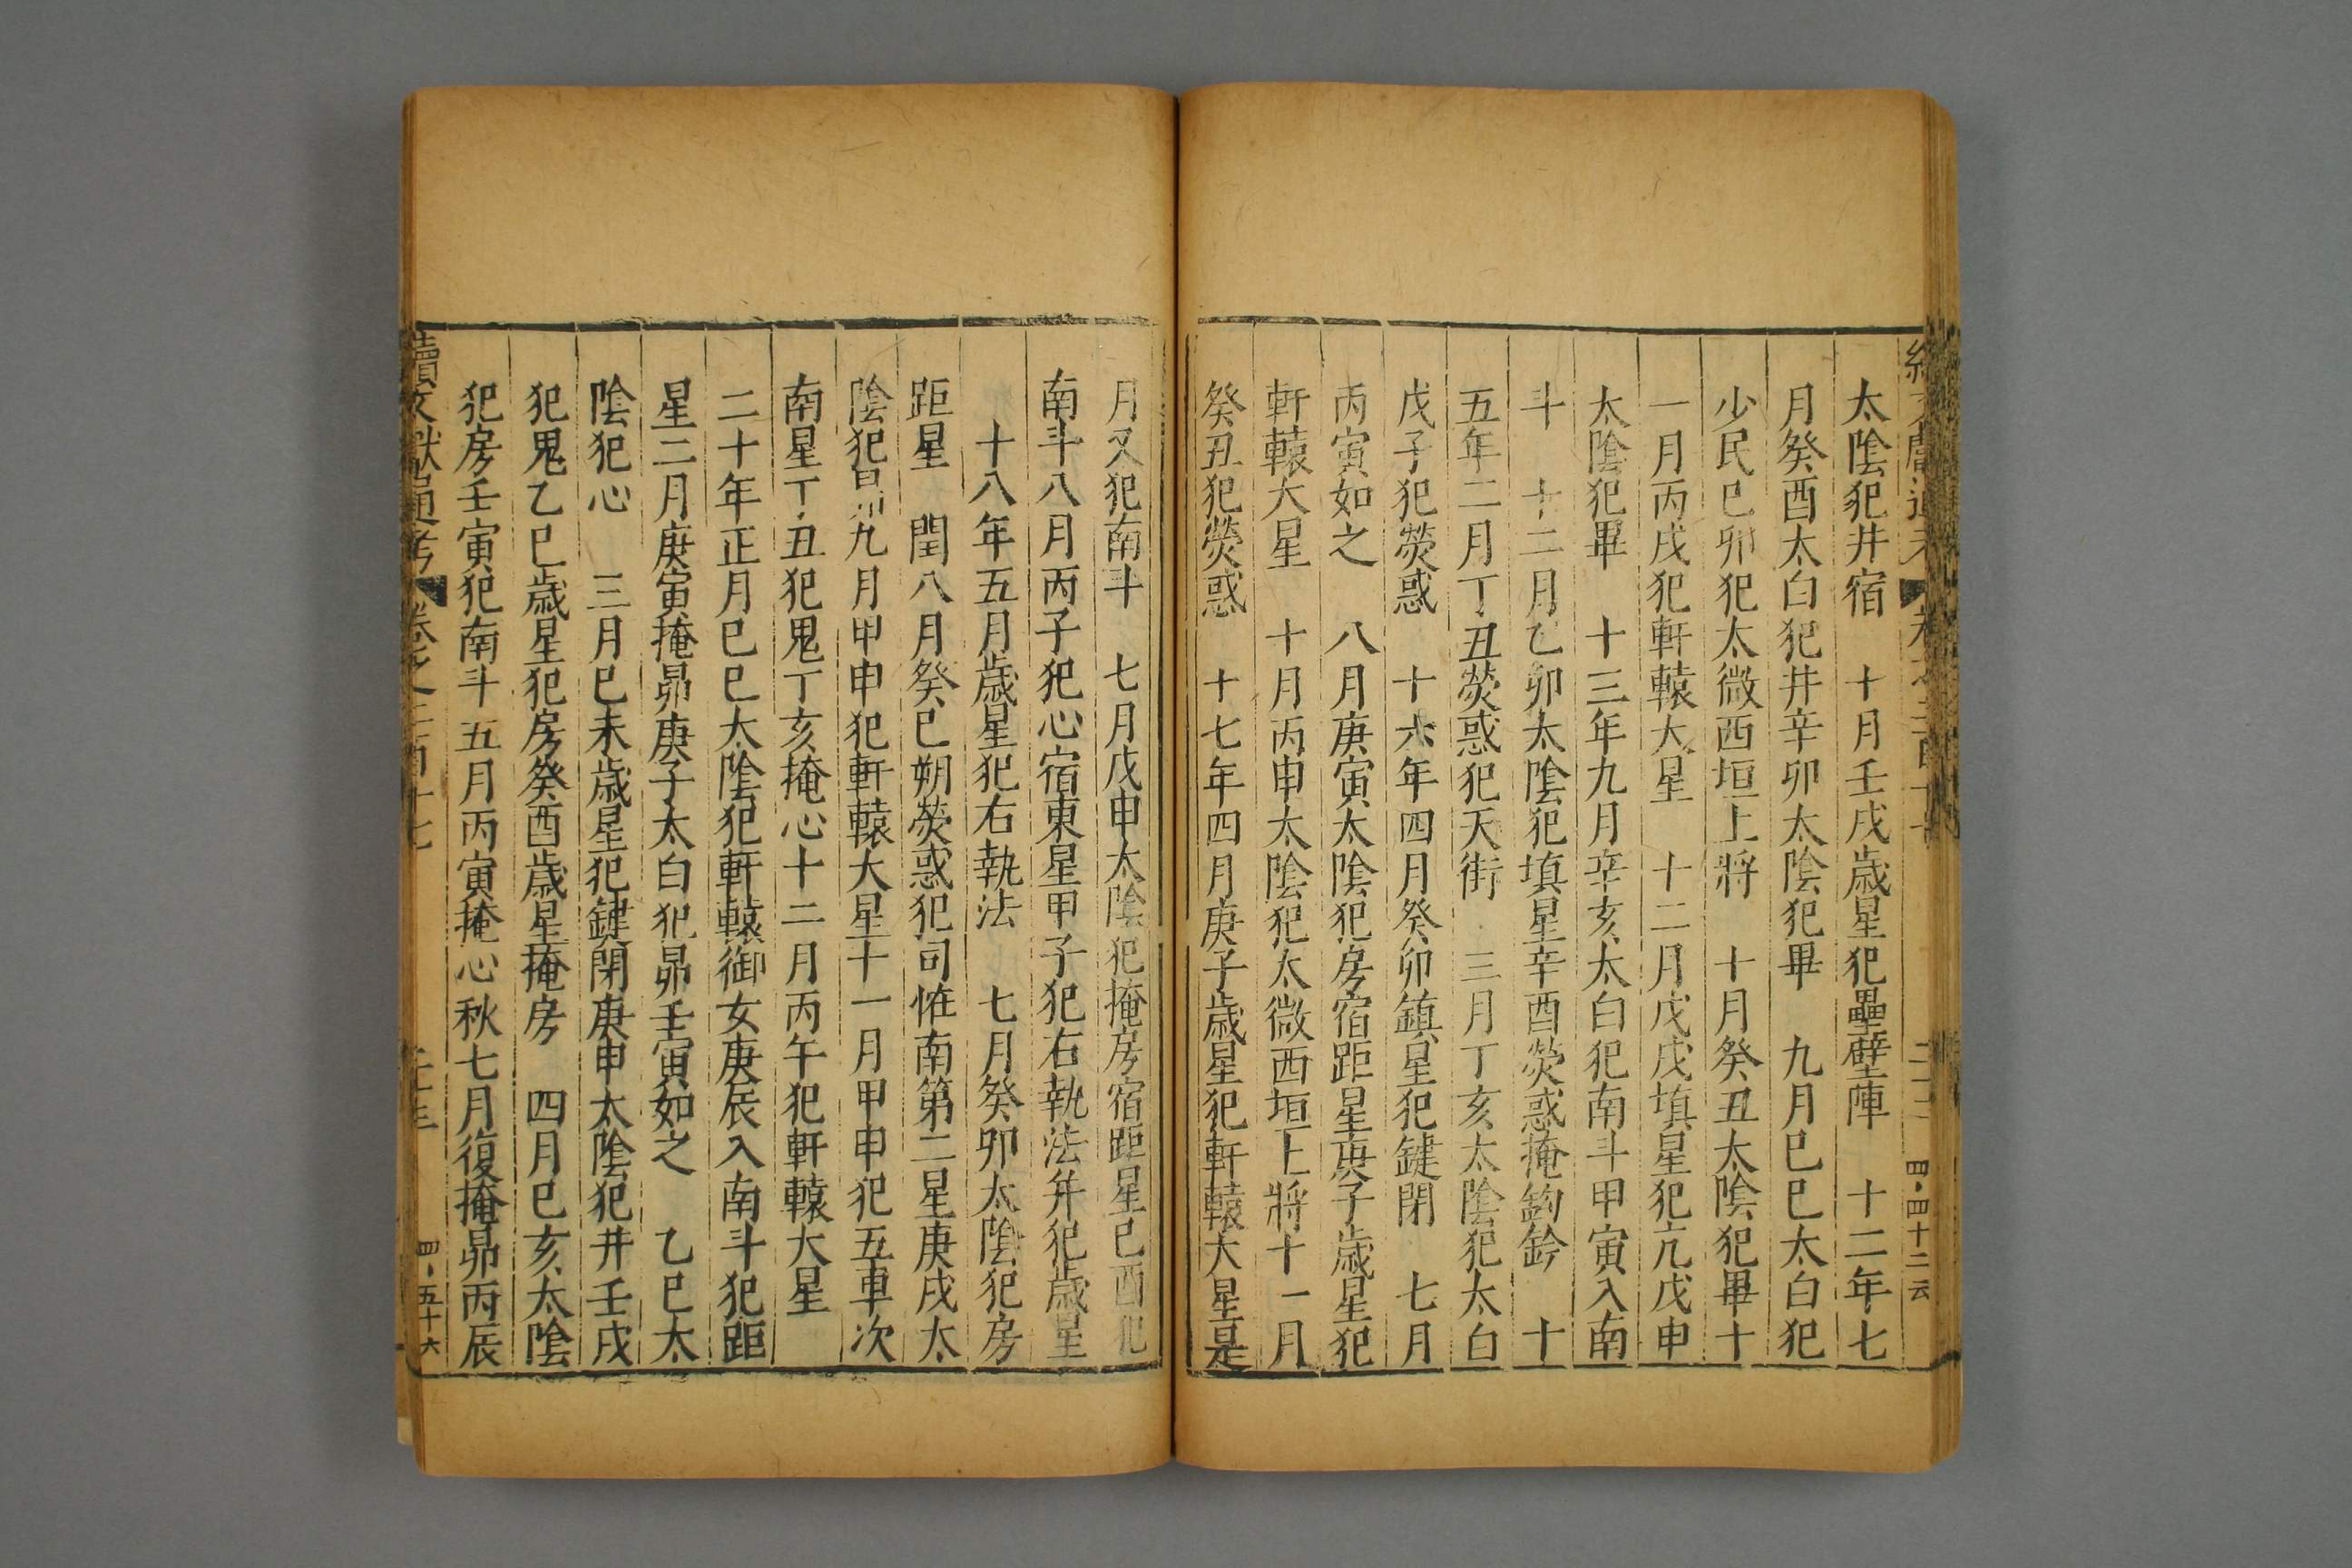 太陰犯井宿　十月壬戌歲星犯壘壁陣　十二年七
月癸酉太白犯井辛卯太陰犯畢　九月巳巳太白犯
少民巳卯犯太微西垣上將　十月癸丑太陰犯畢十
一月丙戌犯軒轅大星　十二月戊戌填星犯亢戊申
太陰犯畢　十三年九月辛亥太白犯南斗甲寅入南
斗　十二月乙卯太陰犯填星辛酉熒惑掩鈎鈐　十
五年二月丁丑熒惑犯天街　三月丁亥太陰犯太白
戊子犯熒惑　十六年四月癸卯鎮星犯鍵閉　七月
丙寅如之　八月庚寅太陰犯房宿距星庚子歲星犯
軒轅大星　十月丙申太陰犯太微西垣上將十一月
癸丑犯熒惑　十七年四月庚子歲星犯軒轅大星是
月又犯南斗　七月戊申太陰犯掩房宿距星己酉犯
南斗八月丙子犯心宿東星甲子犯右執法并犯歲星
十八年五月歲星犯右執法　七月癸卯太陰犯房
距星　閏八月癸巳朔熒惑犯司惟南第二星庚戌太
陰犯昴九月甲申犯軒轅大星十一月甲申犯五車次
南星丁丑犯鬼丁亥掩心十二月丙午犯軒轅大星
二十年正月巳巳大陰犯軒轅御女庚辰入南斗犯距
星二月庚寅掩昴庚子太白犯昴壬寅如之　乙巳太
陰犯心　三月巳未歲星犯鍵閉庚申太陰犯井壬戌
犯鬼乙巳歲星犯房癸酉歲星掩房　四月巳亥太陰
犯房壬寅犯南斗五月丙寅掩心秋七月復掩昴丙辰
續文獻通考　卷之二百十七　四·五十六